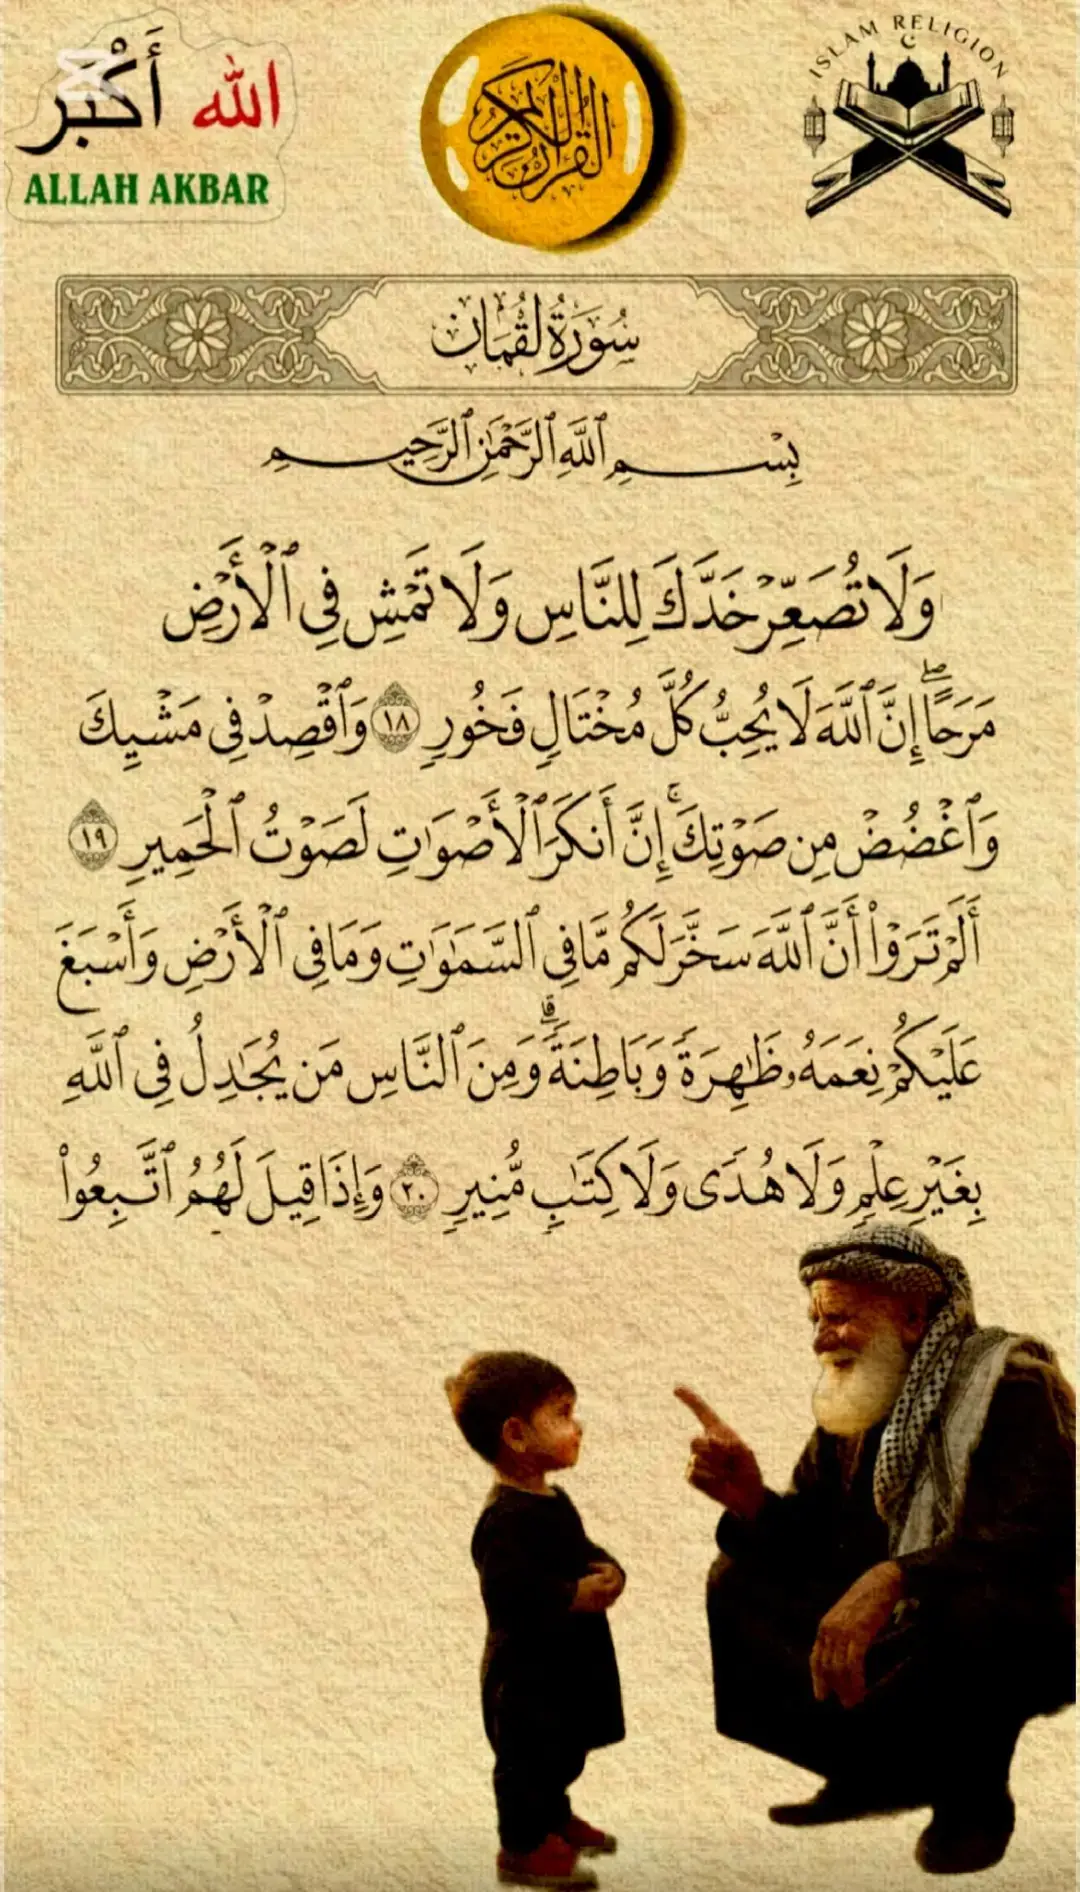 الله أكبر
ALLAH AKBAR
القرآن الكريم
ISLAM RELIGION
سُورَةُ لُقْمَان
بِسْمِ ٱللَّهِ ٱلرَّحْمَٰنِ ٱلرَّحِيمِ
وَلَا تُصَعِّرْ خَدَّكَ لِلنَّاسِ وَلَا تَمْشِ فِي ٱلْأَرْضِ
مَرَحًا ۖ إِنَّ ٱللَّهَ لَا يُحِبُّ كُلَّ مُخْتَالٍ فَخُورٍ ١٨ وَٱقْصِدْ فِي مَشْيِكَ
وَٱغْضُضْ مِن صَوْتِكَ ۚ إِنَّ أَنكَرَ ٱلْأَصْوَٰتِ لَصَوْتُ ٱلْحَمِيرِ ١٩
أَلَمْ تَرَوْا۟ أَنَّ ٱللَّهَ سَخَّرَ لَكُم مَّا فِي ٱلسَّمَٰوَٰتِ وَمَا فِي ٱلْأَرْضِ وَأَسْبَغَ
عَلَيْكُمْ نِعَمَهُۥ ظَٰهِرَةً وَبَاطِنَةً ۗ وَمِنَ ٱلنَّاسِ مَن يُجَٰدِلُ فِي ٱللَّهِ
بِغَيْرِ عِلْمٍ وَلَا هُدًى وَلَا كِتَٰبٍ مُّنِيرٍ ٢٠ وَإِذَا قِيلَ لَهُمُ ٱتَّبِعُوا۟